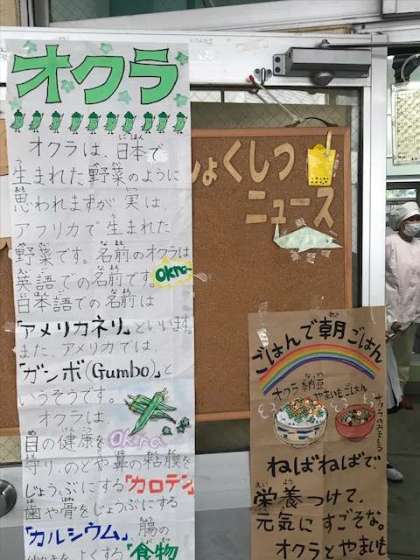 オクラ
オクラは、日本で
生まれた野菜のように
思われますが実は、
アフリカで生まれた
野菜です。名前のオクラは
英語での名前です。
Okra
日本語での名前は
「アメリカネリ」といいます。
また、アメリカでは、
「ガンボ(Gumbo)」と
いうそうです。
オクラは
Okra
目の健康を
守り、のどや鼻の粘膜を
じょうぶにする「カロテン
歯や骨をじょうぶにする
「カルシウム」、腸の
をよくする「食物
しょくしつ
ニュース
ごはんで朝ごはん
オクラ納豆
やまいもごはん
ねばねばで
栄養つけて、
元気にすごそな。
オクラとやまいも